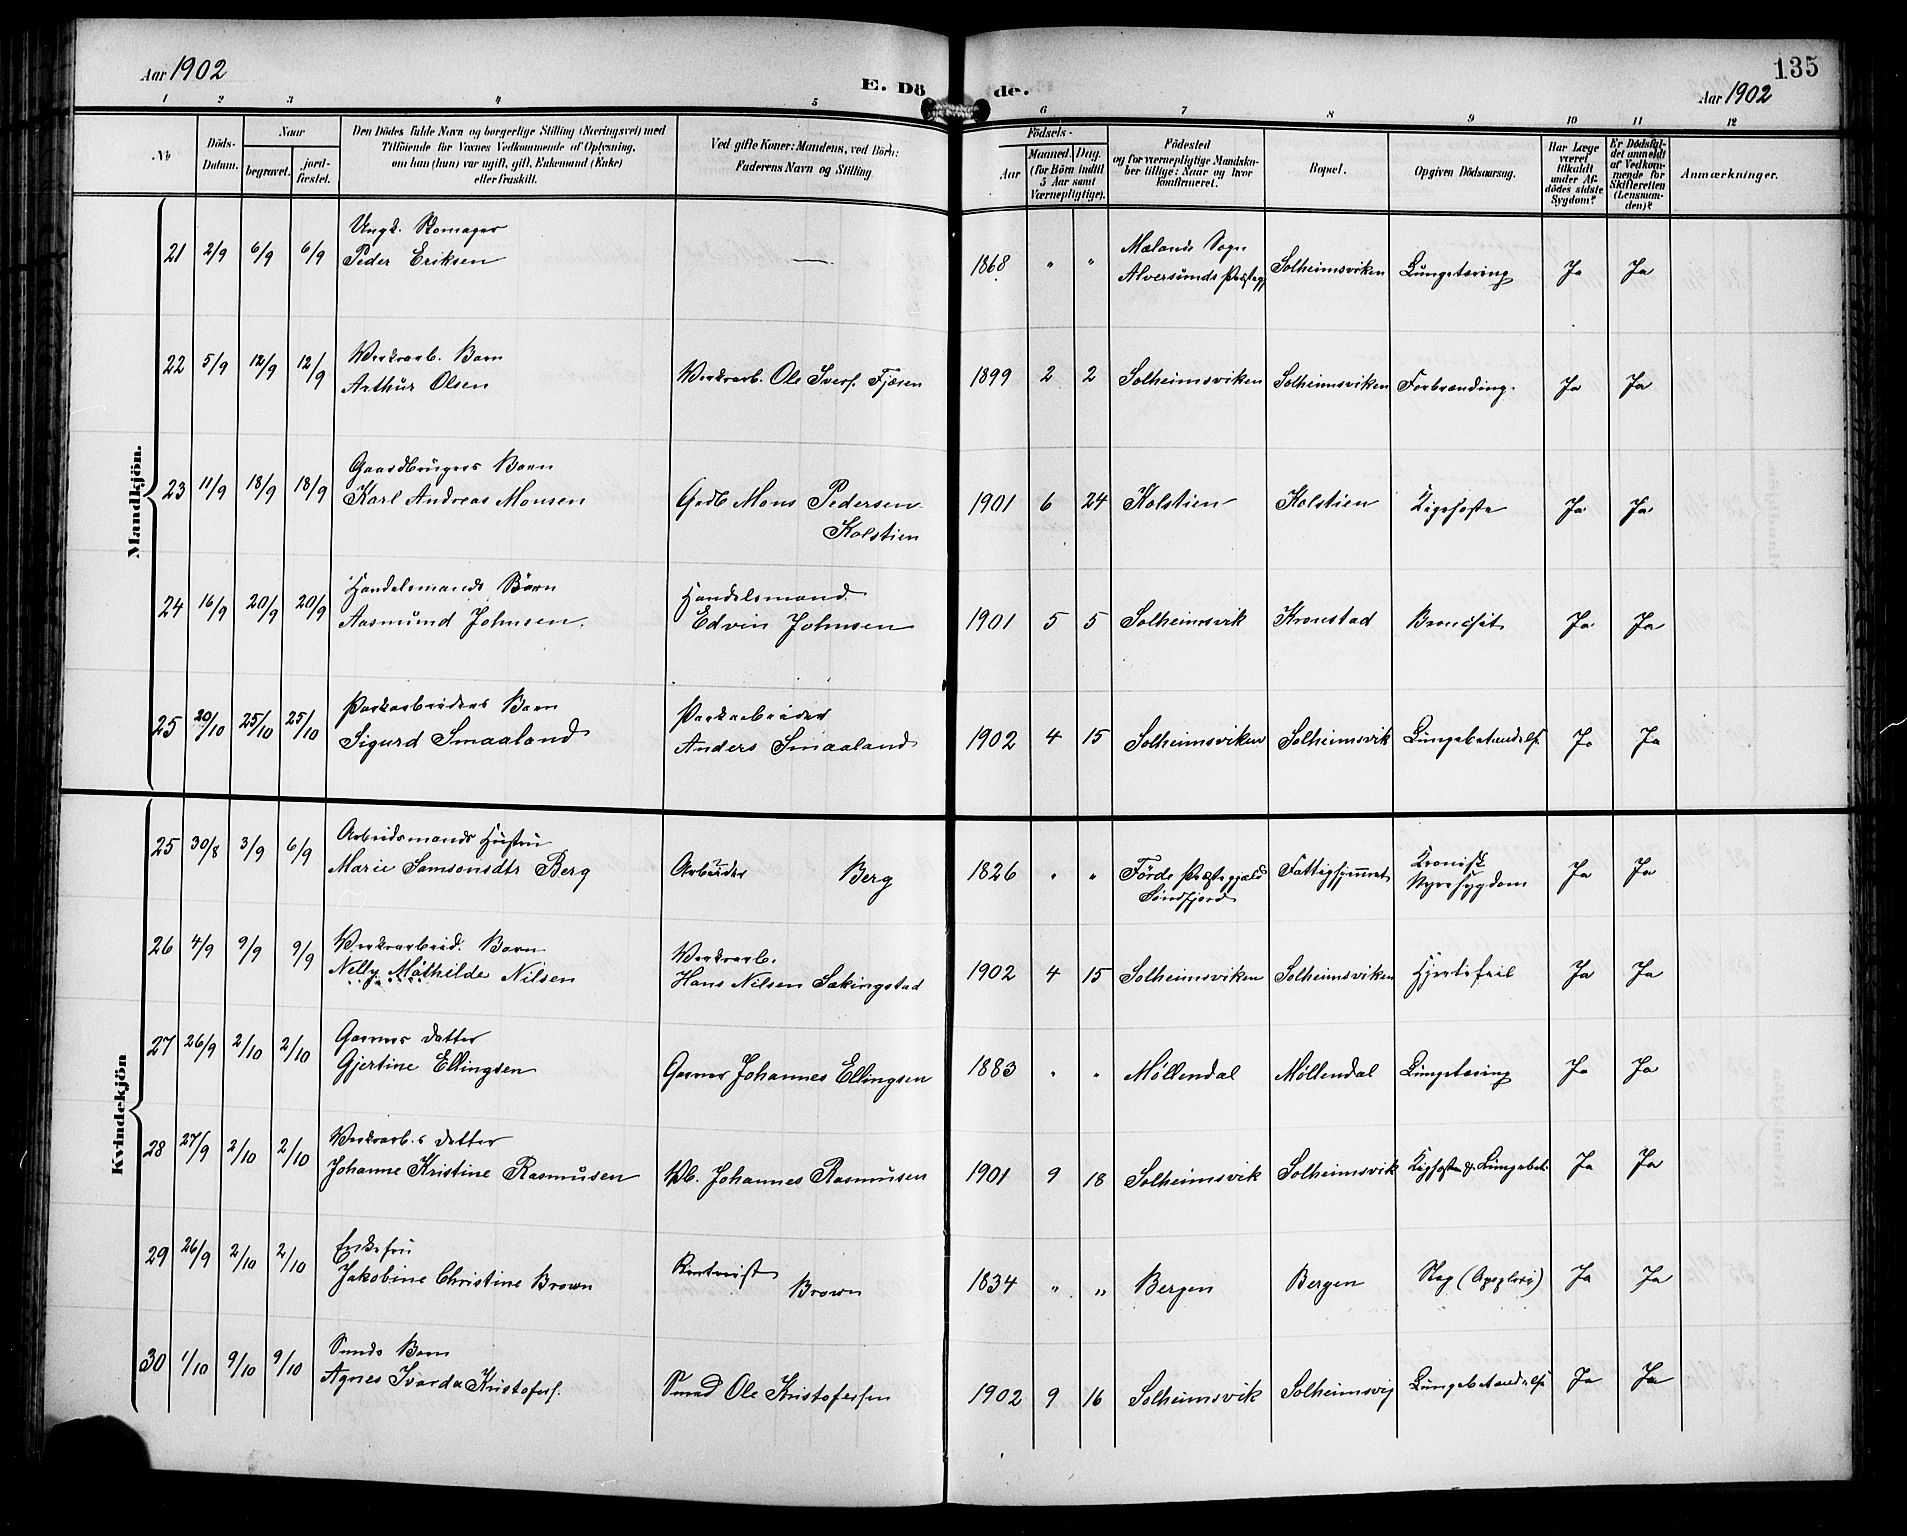 Aar 1902
E. Dö de.
135
Aar 1902
1 2 3 4 5 6 7 8 9 10 11 12
No
Döds-Datum.
Naar
begravet.
jord-fæstet.
Den Dödes fulde Navn og borgerlige Stilling (Næringsvei) med
Tilföiende for Voxnes Vedkommende af Oplysning,
om han (hun) var ugift, gift, Enkemand (Enke)
eller fraskilt.
Ved gifte Koner: Mandens, ved Börn:
Faderens Navn og Stilling.
Födsels-
Aar
Maaned. Dag.
(for Börn indtil
5 Aar samt
Værnepligtige).
Födested
og for værnepligtige Mandska-
ber tillige: Naar og hvor
konfirmeret.
Bopæl.
Opgiven Dödsaarsag.
Har Læge
været
tilkaldt
under Af-
dödes sidste
Sygdom?
Er Dödsfal-
det anmeldt
af Vedkom-
mende for
Skifteretten
(Lensman-
den)?
Anmærkninger.
Mandkjön.
21 2/9 6/9 6/9 Ungk. Skomager
Peder Eriksen — 1868 " " Mælands Sogn
Alversunds Præstegj Solheimsviken Lungetæring Ja Ja
22 5/9 12/9 12/9 Verksarb. Barn
Arthur Olsen Verksarb. Ole Svers. Fjæsen 1899 2 2 Solheimsviken Solheimsviken Forbrænding. Ja Ja
23 11/9 18/9 18/9 Gaardbrugers Barn
Karl Andreas Monsen Gadb Mons Pedersen
Kolstien 1901 6 24 Kolstien Kolstien Kighoste Ja Ja
24 16/9 20/9 20/9 Handelsmands Barn
Aasmund Johnsen. Handelsmand
Edvin Johnsen 1901 5 5 Solheimsvik Kronstad Bronchit Ja Ja
25 20/10 25/10 25/10 Parkarbeiders Barn
Sigurd Smaaland Parkarbeider
Anders Smaaland 1902 4 15 Solheimsviken Solheimsvik Lungebetændelse Ja Ja
Kvindekjön
25 30/8 3/9 6/9 Arbeidsmands Hustru
Marie Samsonsdtr Berg Arbeider Berg 1826 " " Förde Præstegjæld
Söndfjord Fattighjemmet Kronisk
Nyresygdom Ja Ja
26 4/9 9/9 9/9 Verksarbeid. Barn
Nelly Mathilde Nilsen Verksarb.
Hans Nilsen Sækingstad 1902 4 15 Solheimsviken Solheimsviken Hjertefeil Ja Ja
27 26/9 2/10 2/10 Garvers datter
Gjertine Ellingsen Garver Johannes Ellingsen 1883 " " Møllendal Møllendal Lungetæring Ja Ja
28 27/9 2/10 2/10 Verksarb.s datter
Johanne Kristine Rasmusen Vb. Johannes Rasmusen 1901 9 18 Solheimsvik Solheimsvik Kighoste & Lungebet. Ja Ja
29 26/9 2/10 2/10 Enkefru
Jakobine Christine Brown Brown 1834 " " Bergen Bergen Slag (Apoplexi) Ja Ja
30 1/10 9/10 9/10 Smeds Barn
Agnes Ivarda Kristofers. Smed Ole Kristofersen 1902 9 16 Solheimsvik Solheimsvig Lungebetændelse Ja Ja